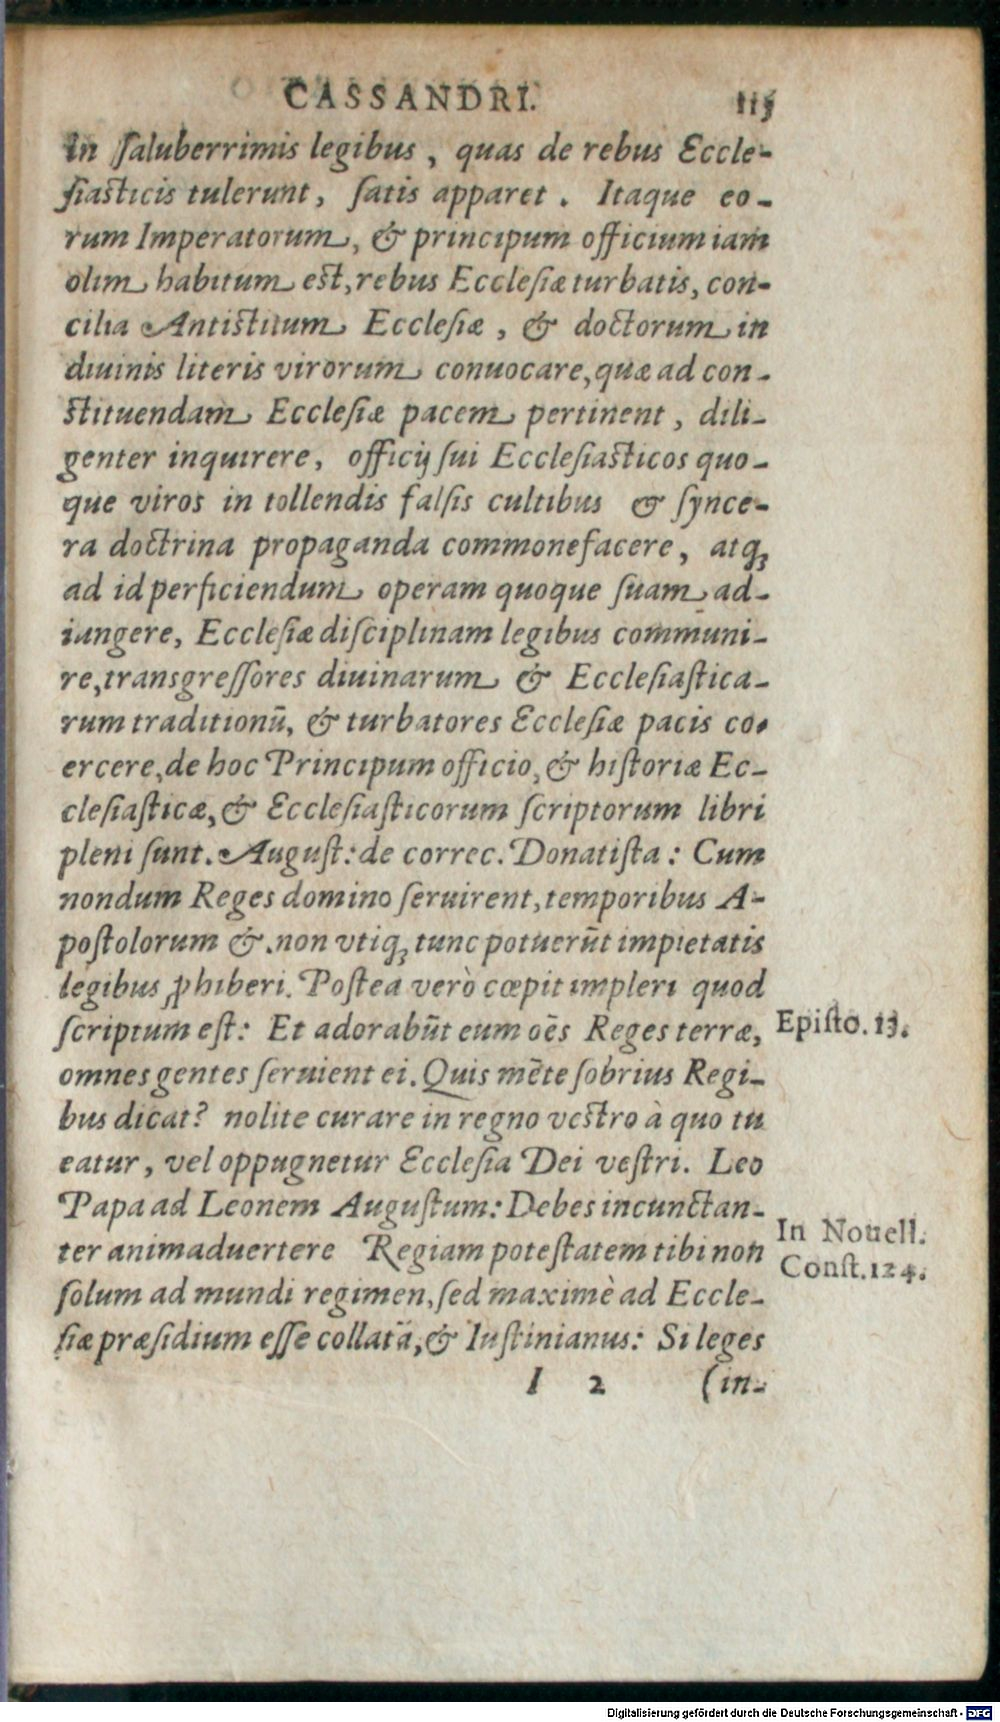 CASSANDRI. 115
in ſaluberrimis legibus, quas de rebus Eccle-
ſiaſticis tulerunt, ſatis apparet. Itaque eo-
rum Imperatorum, & principum officium iam
olim habitum eſt, rebus Eccleſiæ turbatis, con-
cilia Antiſtitum Eccleſiæ, & doctorum in
diuinis literis virorum conuocare, quæ ad con-
ſtituendam Eccleſiæ pacem pertinent, dili-
genter inquirere, officij ſui Eccleſiaſticos quo-
que viros in tollendis falſis cultibus & ſynce-
ra doctrina propaganda commonefacere, atq́ꝫ
ad id perficiendum operam quoque ſuam ad-
iungere, Eccleſiæ diſciplinam legibus communi-
re, transgreſſores diuinarum & Eccleſiaſtica-
rum traditionũ, & turbatores Eccleſiæ pacis co-
ercere, de hoc Principum officio, & hiſtoriæ Ec-
cleſiaſticæ, & Eccleſiaſticorum ſcriptorum libri
pleni ſunt. Auguſt: de correc. Donatiſta: Cum
nondum Reges domino ſeruirent, temporibus A-
poſtolorum &. non vtiqꝫ tunc potuerũt impietatis
legibus ꝓhiberi. Poſtea verò cœpit impleri quod
ſcriptum eſt: Et adorabũt eum oẽs Reges terræ,
Epiſto. 13.
omnes gentes ſeruient ei. Quis mẽte ſobrius Regi-
bus dicat? nolite curare in regno veſtro à quo tu
eatur, vel oppugnetur Eccleſia Dei veſtri. Leo
Papa ad Leonem Auguſtum: Debes incunctan-
ter animaduertere Regiam poteſtatem tibi non
In Nouell.
Conſt. 124.
ſolum ad mundi regimen, ſed maximè ad Eccle-
ſiæ præſidium eſſe collatã, & Iuſtinianus: Si leges
I 2 (in-
Digitalisierung gefördert durch die Deutsche Forschungsgemeinschaft - DFG